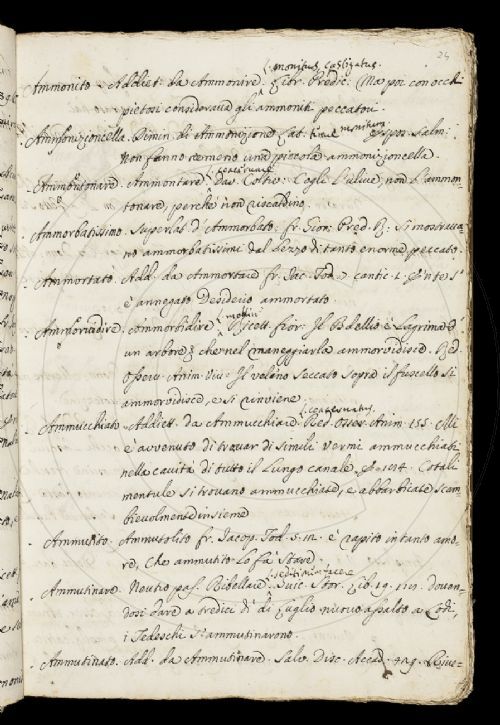 24
monitus, castigatus.
Ammonito. Addiet. da Ammonire. Libr. Predic. Ma poi con occhi
pietosi considerava gli ammoniti peccatori
Ammonizioncella. Dimin. di Ammonizione Lat. monitum Espos. Salm:
Non fanno nemeno una piccola ammonizioncella.
Ammontonare. Ammontare. Dav. Coltiv. Cogli l'ulive, non l'ammon-
tonare, perchè non riscaldino.
Ammorbatissimo. Superlat. d'Ammorbato. fr. Gior. Pred. R. Si mostrava-
no ammorbatissimi dal lezzo di tanto enorme peccato.
Ammortato. Add. da Ammortare fr. Iac. Tod.
è annegato Desiderio ammortato.
Ammorvidire. Ammorbidire. Ricett. Fior. Il Bdellio è lagrima d'
un arbore che nel maneggiarla ammorvidisce. Red.
Osserv. Anim. Il veleno seccato sopra il fuscello si
ammorvidisce, e si rinviene
Ammucchiato. Addiet. da Ammucchiare Red. Osser. Anim. 155. Mi
è avvenuto di trovar di simili vermi ammucchiati
nella cavità di tutto il lungo canale. E 104. Cotali
mentule si trovano ammucchiate, e abbarbicate scam
bievolmente insieme
Ammutito. Ammutolito fr. Jacop. Tod. 5. 12. è rapito in tanto amo-
re, Che ammutito lo fà stare.
Ammutinare. Neutro pas. Ribellare. Guic. Stor. lib. 19. Doven-
dosi dare a tredici dì di Luglio nuovo assalto a Lodi,
i Tedeschi s'ammutinarono.
Ammutinato. Add. da Ammutinare. Salv. Disc. Accad.